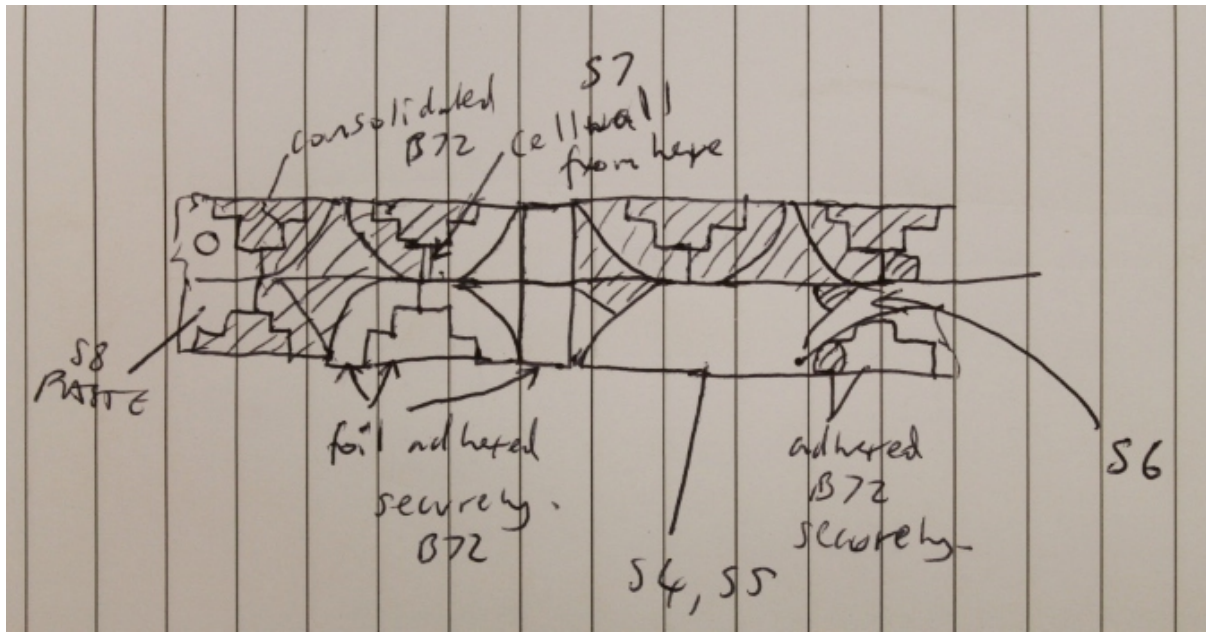 S7
consolidated
B72
cell wall
from here
S8
PASTE
foil adhered
securely.
B72
adhered
B72
securely
S6
S4, S5